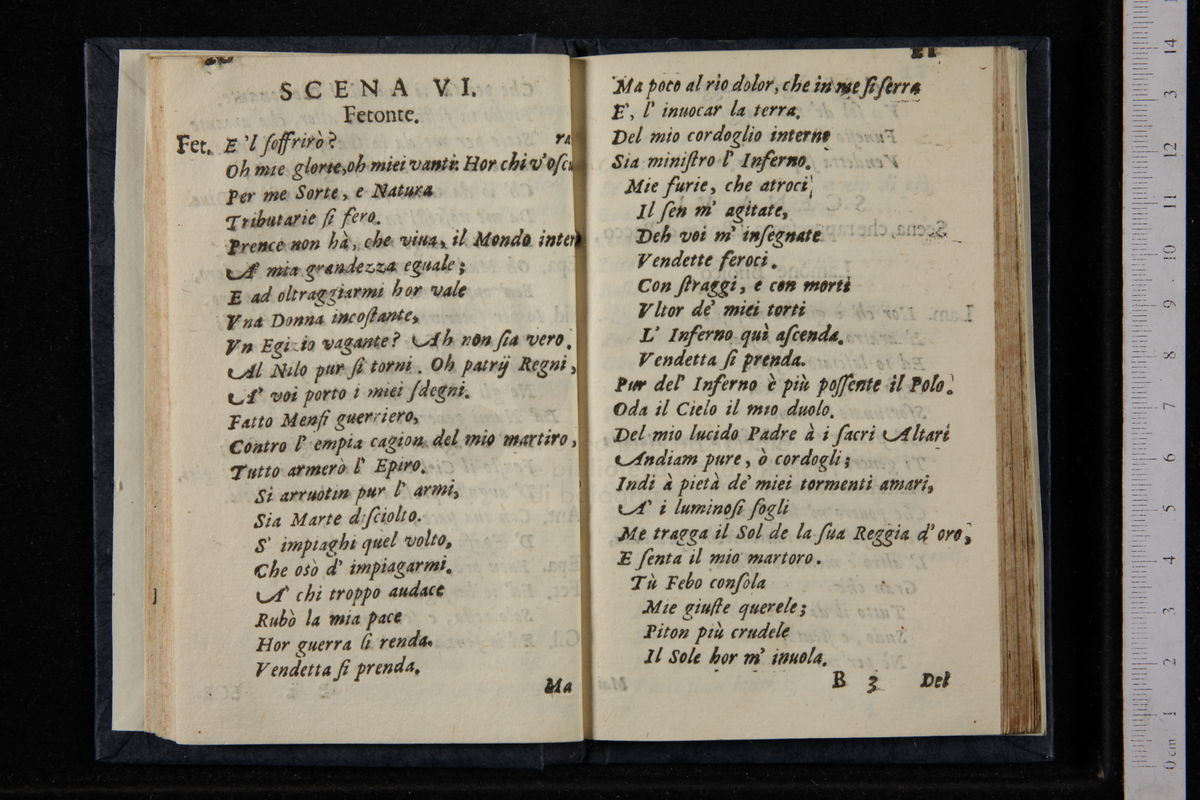 SCENA VI.
Fetonte.
Fet. E 'l ſoffrirò? ra
Oh mie glorie, oh miei vanti: Hor chi v' oſcu
Per me Sorte, e Natura
Tributarie ſi fero.
Prence non hà, che viua, il Mondo intero
A' mia grandezza eguale;
E ad oltraggiarmi hor vale
Vna Donna incoſtante,
Vn Egizio vagante? Ah non ſia vero.
Al Nilo pur ſi torni. Oh patrij Regni,
A' voi porto i miei ſdegni.
Fatto Menfi guerriero,
Contro l' empia cagion del mio martiro,
Tutto armerò l' Epiro.
Si arruotin pur l' armi,
Sia Marte diſciolto.
S' impiaghi quel volto,
Che osò d' impiagarmi.
A' chi troppo audace
Rubò la mia pace
Hor guerra ſi renda.
Vendetta ſi prenda.
Ma
Ma poco al rio dolor, che in me ſi ſerra
E', l' inuocar la terra.
Del mio cordoglio interno
Sia miniſtro l' Inferno.
Mie furie, che atroci
Il ſen m' agitate,
Deh voi m' inſegnate
Vendette feroci.
Con ſtraggi, e con morti
Vltor de' miei torti
L' Inferno quì aſcenda.
Vendetta ſi prenda.
Pur del' Inferno è più poſſente il Polo.
Oda il Cielo il mio duolo.
Del mio lucido Padre à i ſacri Altari
Andiam pure, ò cordogli;
Indi à pietà de' miei tormenti amari,
A' i luminoſi ſogli
Me tragga il Sol de la ſua Reggia d' oro,
E ſenta il mio martoro.
Tù Febo conſola
Mie giuſte querele;
Piton più crudele
Il Sole hor m' inuola.
B 3 Del
0 cm 1 2 3 4 5 6 7 8 9 10 11 12 3 14